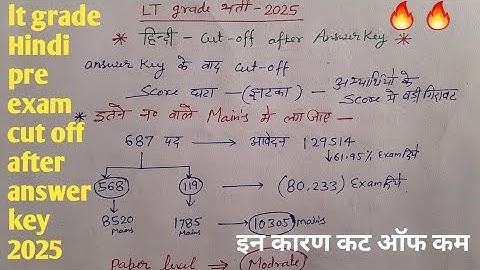 lt grade
Hindi
pre
exam
cut off
after
answer
key
2025
LT grade भर्ती - 2025
* हिन्दी - Cut-off after Answer Key *
answer Key के बाद cut-off
Score घटा - (झटका) - अभ्यार्थियो के
Score में बड़ी गिरावट
* इतने न० वाले Mains में लग जाए -
687 पद → आवेदन 129514
↓61.95% Exam दिये
568 119 → (80,233) Exam दिये
8520 Mains 1785 Mains → 10305 Mains
इन कारण कट ऑफ कम
Paper level → (Modrate)